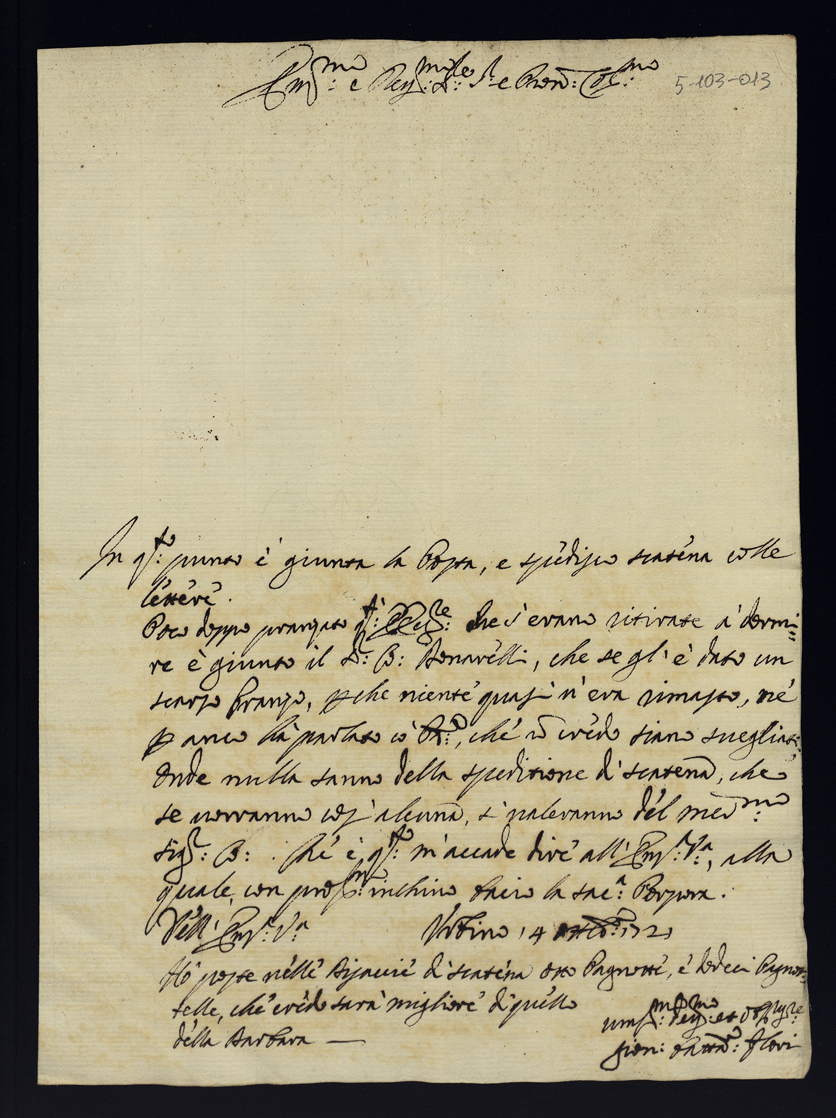 Em.mo e Rev.mo S.r e Pron: Col.mo
5-103-013
In q.to punto è giunta la Posta, e spedisco scatena colle
lettere.
Poco doppo pranzato q.ti che s'erano ritirate à dormi=
re è giunto il S.r B: Bonarelli, che se gl'è dato un
scarso pranzo, p che niente quasi n'era rimasto, nè
p anco hà parlato cò, ché ñ credo siano svegliati
Onde nulla sanno della speditione di scatena, che
se vorranno cos'alcuna, si valeranno del med.mo
Sig.r B: . Ché è q.to m'accade dire all' Em.za V.a, alla
quale, con prof.mo inchino bacio la sac.a Porpora.
Dell' Em.za V.a Urbino 14 1721
Hò poste nelle Bisaccie di scatena otto Pagnotte, è dodeci Pagnot=
telle, che credo sarà migliore di quello
della Barbara —
um.mo dev.mo et obg.mo
Gio: Batta: Flori